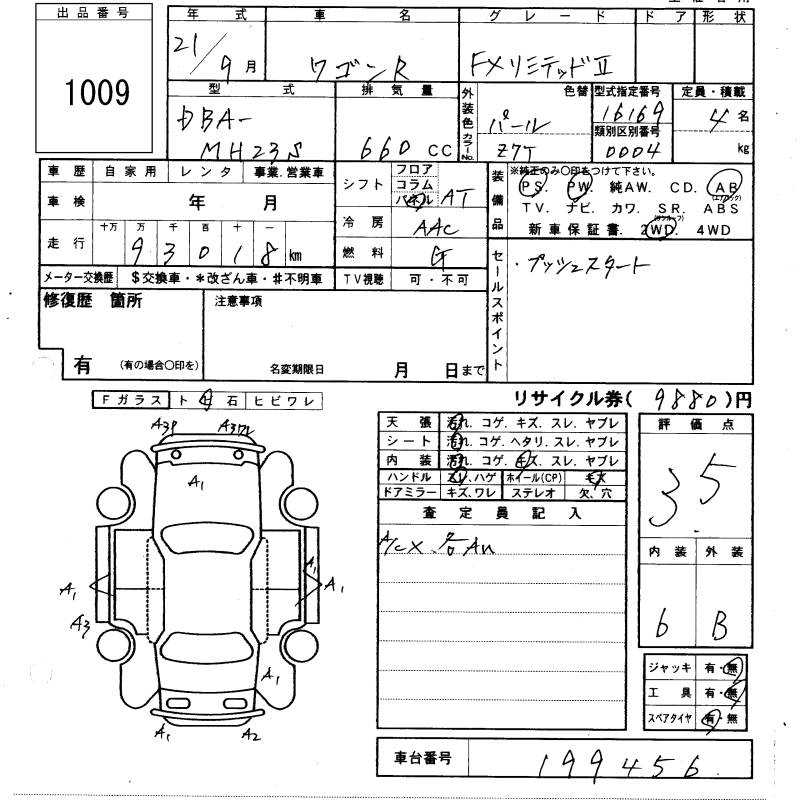 出品番号
1009
年式 車名 グレード ドア 形状
21/9月 ワゴンR FXリミテッドⅡ
型式 排気量 外装色 色替 型式指定番号 定員・積載
DBA-
MH23S 660cc パール 16169 4名
カラーNo. Z7T 類別区別番号 0004 kg
車歴 自家用 レンタ 事業.営業車
車検 年 月
走行 十万 万 千 百 十 一
93018km
メーター交換歴 $交換車・*改ざん車・#不明車
シフト フロア コラム パネル AT
冷房 AAC
燃料
TV視聴 可・不可
装備品 ※純正のみ〇印をつけて下さい。
PS. PW. 純AW. CD. AB(エアバック)
TV. ナビ. カワ. SR(サンルーフ). ABS
新車保証書. 2WD. 4WD
セールスポイント ・プッシュスタート
修復歴 箇所 注意事項
有 (有の場合〇印を) 名変期限日 月 日まで
リサイクル券(9880)円
Fガラス ト 石 ヒビワレ
A3P A3ワレ
A1
A1 A1 A1
A3
A1
A1 A2
天張 汚れ. コゲ. キズ. スレ. ヤブレ
シート 汚れ. コゲ. ヘタリ. スレ. ヤブレ
内装 汚れ. コゲ. キズ. スレ. ヤブレ
ハンドル スレ.ハゲ ホイール(CP) キズ
ドアミラー キズ.ワレ ステレオ 欠.穴
査定員記入
A/C×.
評価点
3.5
内装 外装
6 B
ジャッキ 有・無
工具 有・無
スペアタイヤ 有・無
車台番号 199456